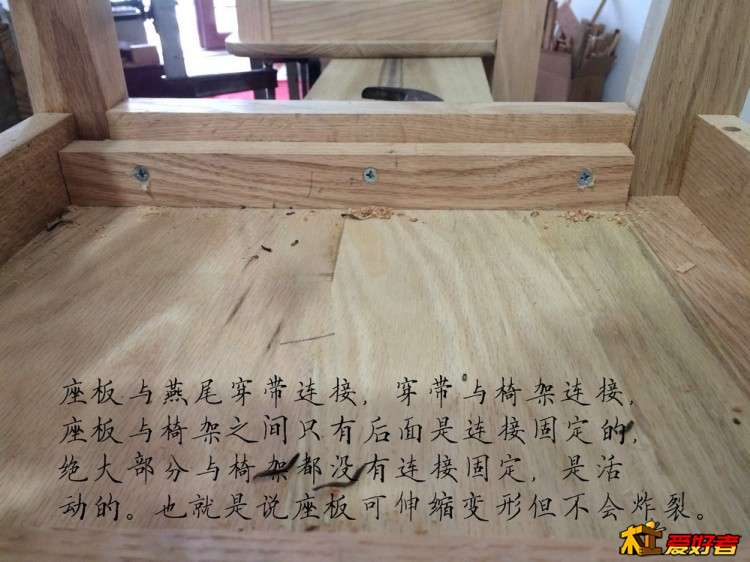 座板与燕尾穿带连接，穿带与椅架连接，
座板与椅架之间只有后面是连接固定的，
绝大部分与椅架都没有连接固定，是活
动的。也就是说座板可伸缩变形但不会炸裂。
木工爱好者